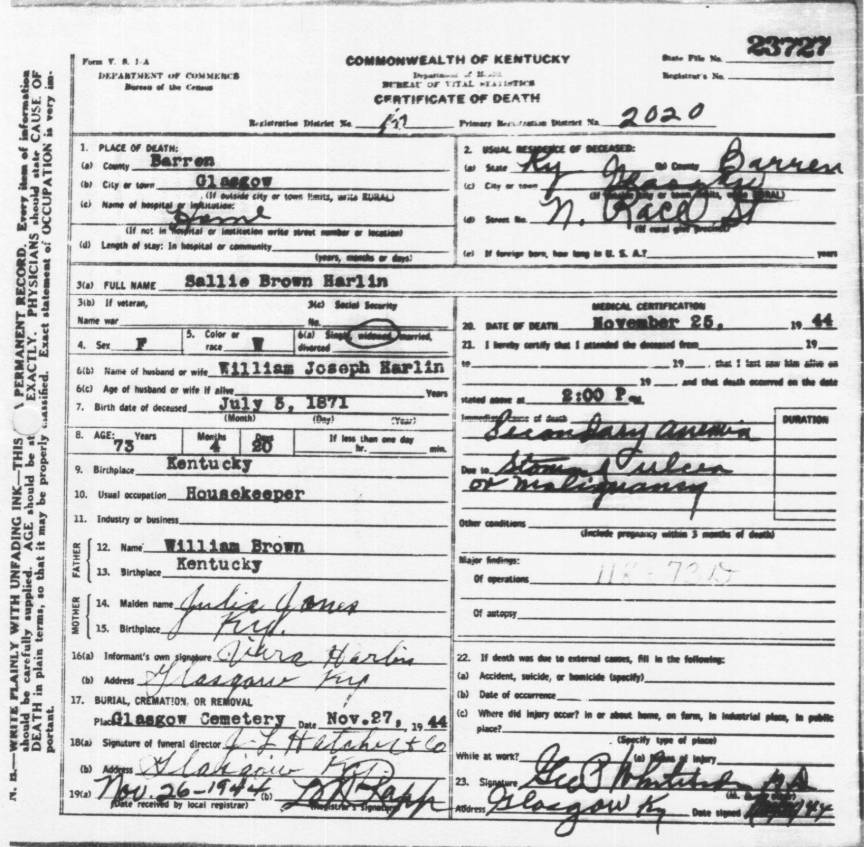 23727
Form V. S. 1-A
DEPARTMENT OF COMMERCE
Bureau of the Census
COMMONWEALTH OF KENTUCKY
Department of Health
BUREAU OF VITAL STATISTICS
CERTIFICATE OF DEATH
State File No.
Registrar's No.
Registration District No. Primary Registration District No. 2020
N. B.—WRITE PLAINLY WITH UNFADING INK—THIS A PERMANENT RECORD. Every item of information
should be carefully supplied. AGE should be EXACTLY. PHYSICIANS should state CAUSE OF
DEATH in plain terms, so that it may be properly classified. Exact statement of OCCUPATION is very im-
portant.
1. PLACE OF DEATH:
(a) County Barren
(b) City or town Glasgow
(If outside city or town limits, write RURAL)
(c) Name of hospital or institution:
Home
(If not in hospital or institution write street number or location)
(d) Length of stay: In hospital or community
(years, months or days)
2. USUAL RESIDENCE OF DECEASED:
(a) State Ky (b) County Barren
(c) City or town Glasgow
(If outside city or town limits, write RURAL)
(d) Street No. N. Race St
(If rural give precinct)
(e) If foreign born, how long in U. S. A.? years
3(a) FULL NAME Sallie Brown Harlin
3(b) If veteran,
Name war
3(c) Social Security
No.
4. Sex F
5. Color or
race W
6(a) Single, widowed, married,
divorced
6(b) Name of husband or wife William Joseph Harlin
6(c) Age of husband or wife if alive Years
7. Birth date of deceased July 5, 1871
(Month) (Day) (Year)
8. AGE: Years Months Days If less than one day
73 4 20 hr. min.
9. Birthplace Kentucky
10. Usual occupation Housekeeper
11. Industry or business
FATHER
12. Name William Brown
13. Birthplace Kentucky
MOTHER
14. Maiden name Julia Jones
15. Birthplace Ky.
16(a) Informant's own signature Vera Harlin
(b) Address Glasgow Ky
17. BURIAL, CREMATION, OR REMOVAL
Place Glasgow Cemetery Date Nov.27, 1944
18(a) Signature of funeral director J L Hatcher & Co
(b) Address Glasgow Ky
19(a) Nov. 26-1944 (b)
(Date received by local registrar) (Registrar's signature)
MEDICAL CERTIFICATION
20. DATE OF DEATH November 25, 19 44
21. I hereby certify that I attended the deceased from 19
to 19 , that I last saw him alive on
19 and that death occurred on the date
stated above at 2:00 P m.
Immediate cause of death DURATION
Secondary anemia
Due to Stomach ulcer
or malignancy
Other conditions
(Include pregnancy within 3 months of death)
Major findings:
Of operations
Of autopsy
22. If death was due to external causes, fill in the following:
(a) Accident, suicide, or homicide (specify)
(b) Date of occurrence
(c) Where did injury occur? in or about home, on farm, in industrial place, in public
place?
(Specify type of place)
While at work? (e) Means of injury
23. Signature Geo P
Address Glasgow Ky Date signed